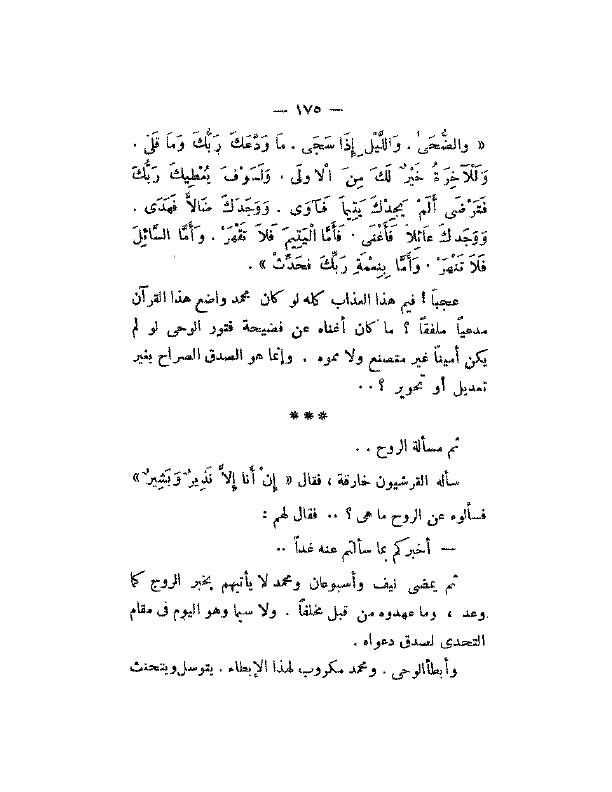 — ١٧٥ —
« والضُّحَىٰ . وَاللَّيْلِ إِذَا سَجَى . مَا وَدَّعَكَ رَبُّكَ وَمَا قَلَىٰ .
وَلَلْآخِرَةُ خَيْرٌ لَكَ مِنَ الْاولَى . وَلَسَوْفَ يُعْطِيكَ رَبُّكَ
فَتَرْضَى أَلَمْ يَجِدْكَ يَتِيماً فَآوَى . وَوَجَدَكَ ضَالاًّ فَهَدَى .
وَوَجَدكَ عَائِلاً فَأَغْنَى . فَأَمَّا الْيَتِيمَ فَلَا تَقْهَرْ . وَأَمَّا السَّائِلَ
فَلَا تَنْهَرْ . وَأَمَّا بِنِعْمَةِ رَبِّكَ فَحَدِّثْ » .
عجباً ! فيم هذا العذاب كله لو كان محمد واضع هذا القرآن
مدعياً ملفقاً ؟ ما كان أغناه عن فضيحة فتور الوحى لو لم
يكن أميناً غير متصنع ولا مموه . وإنما هو الصدق الصراح بغير
تعديل أو تحوير ؟ ..
***
ثم مسألة الروح ..
سأله القرشيون خارقة ، فقال « إِنْ أَنَا إِلاَّ نَذِيرٌ وَبَشِيرٌ »
فسألوه عن الروح ما هى ؟ .. فقال لهم :
— أخبركم بما سألتم عنه غداً ..
ثم يمضى نيف وأسبوعان ومحمد لا يأتيهم بخبر الروح كما
وعد ، وما عهدوه من قبل مخلفاً . ولا سيما وهو اليوم فى مقام
التحدى لصدق دعواه .
وأبطأ الوحى . ومحمد مكروب لهذا الإبطاء . يتوسل ويتحنث